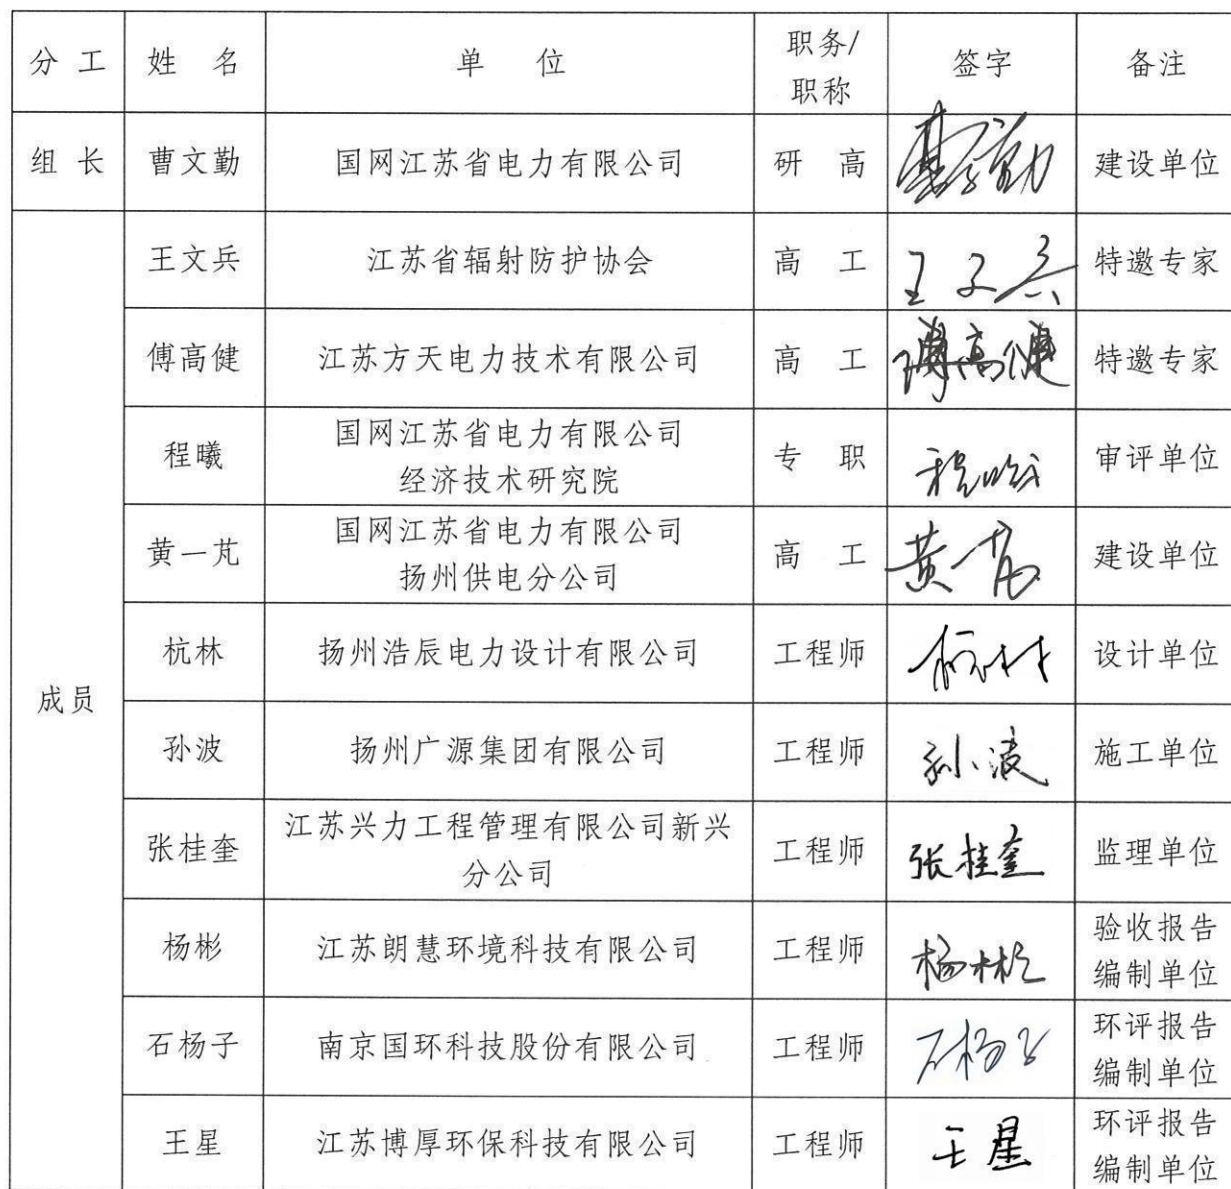 分 工 姓 名 单 位 职务/ 签字 备注
职称
组 长 曹文勤 国网江苏省电力有限公司 研 高 曹文勤 建设单位
王文兵 江苏省辐射防护协会 高 工 王文兵 特邀专家
傅高健 江苏方天电力技术有限公司 高 工 傅高健 特邀专家
程曦 国网江苏省电力有限公司 专 职 程曦 审评单位
经济技术研究院
黄一芃 国网江苏省电力有限公司 高 工 黄一芃 建设单位
扬州供电分公司
杭林 扬州浩辰电力设计有限公司 工程师 杭林 设计单位
成员
孙波 扬州广源集团有限公司 工程师 孙波 施工单位
张桂奎 江苏兴力工程管理有限公司新兴 工程师 张桂奎 监理单位
分公司
杨彬 江苏朗慧环境科技有限公司 工程师 杨彬 验收报告
编制单位
石杨子 南京国环科技股份有限公司 工程师 石杨子 环评报告
编制单位
王星 江苏博厚环保科技有限公司 工程师 王星 环评报告
编制单位